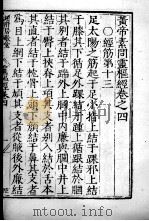 黃帝素問靈樞經卷之四
○經筋第十三
足太陽之筋起于足小指上結于踝邪上結
于膝其下循足外側結于踵上循跟結于膕
其別者結于踹外上膕中內廉與膕中并上
結于臀上挾脊上項其支者別入結于舌本
其直者結于枕骨上頭下顏結于鼻其支者
爲目上網下結于頄其支者從腋後外廉結